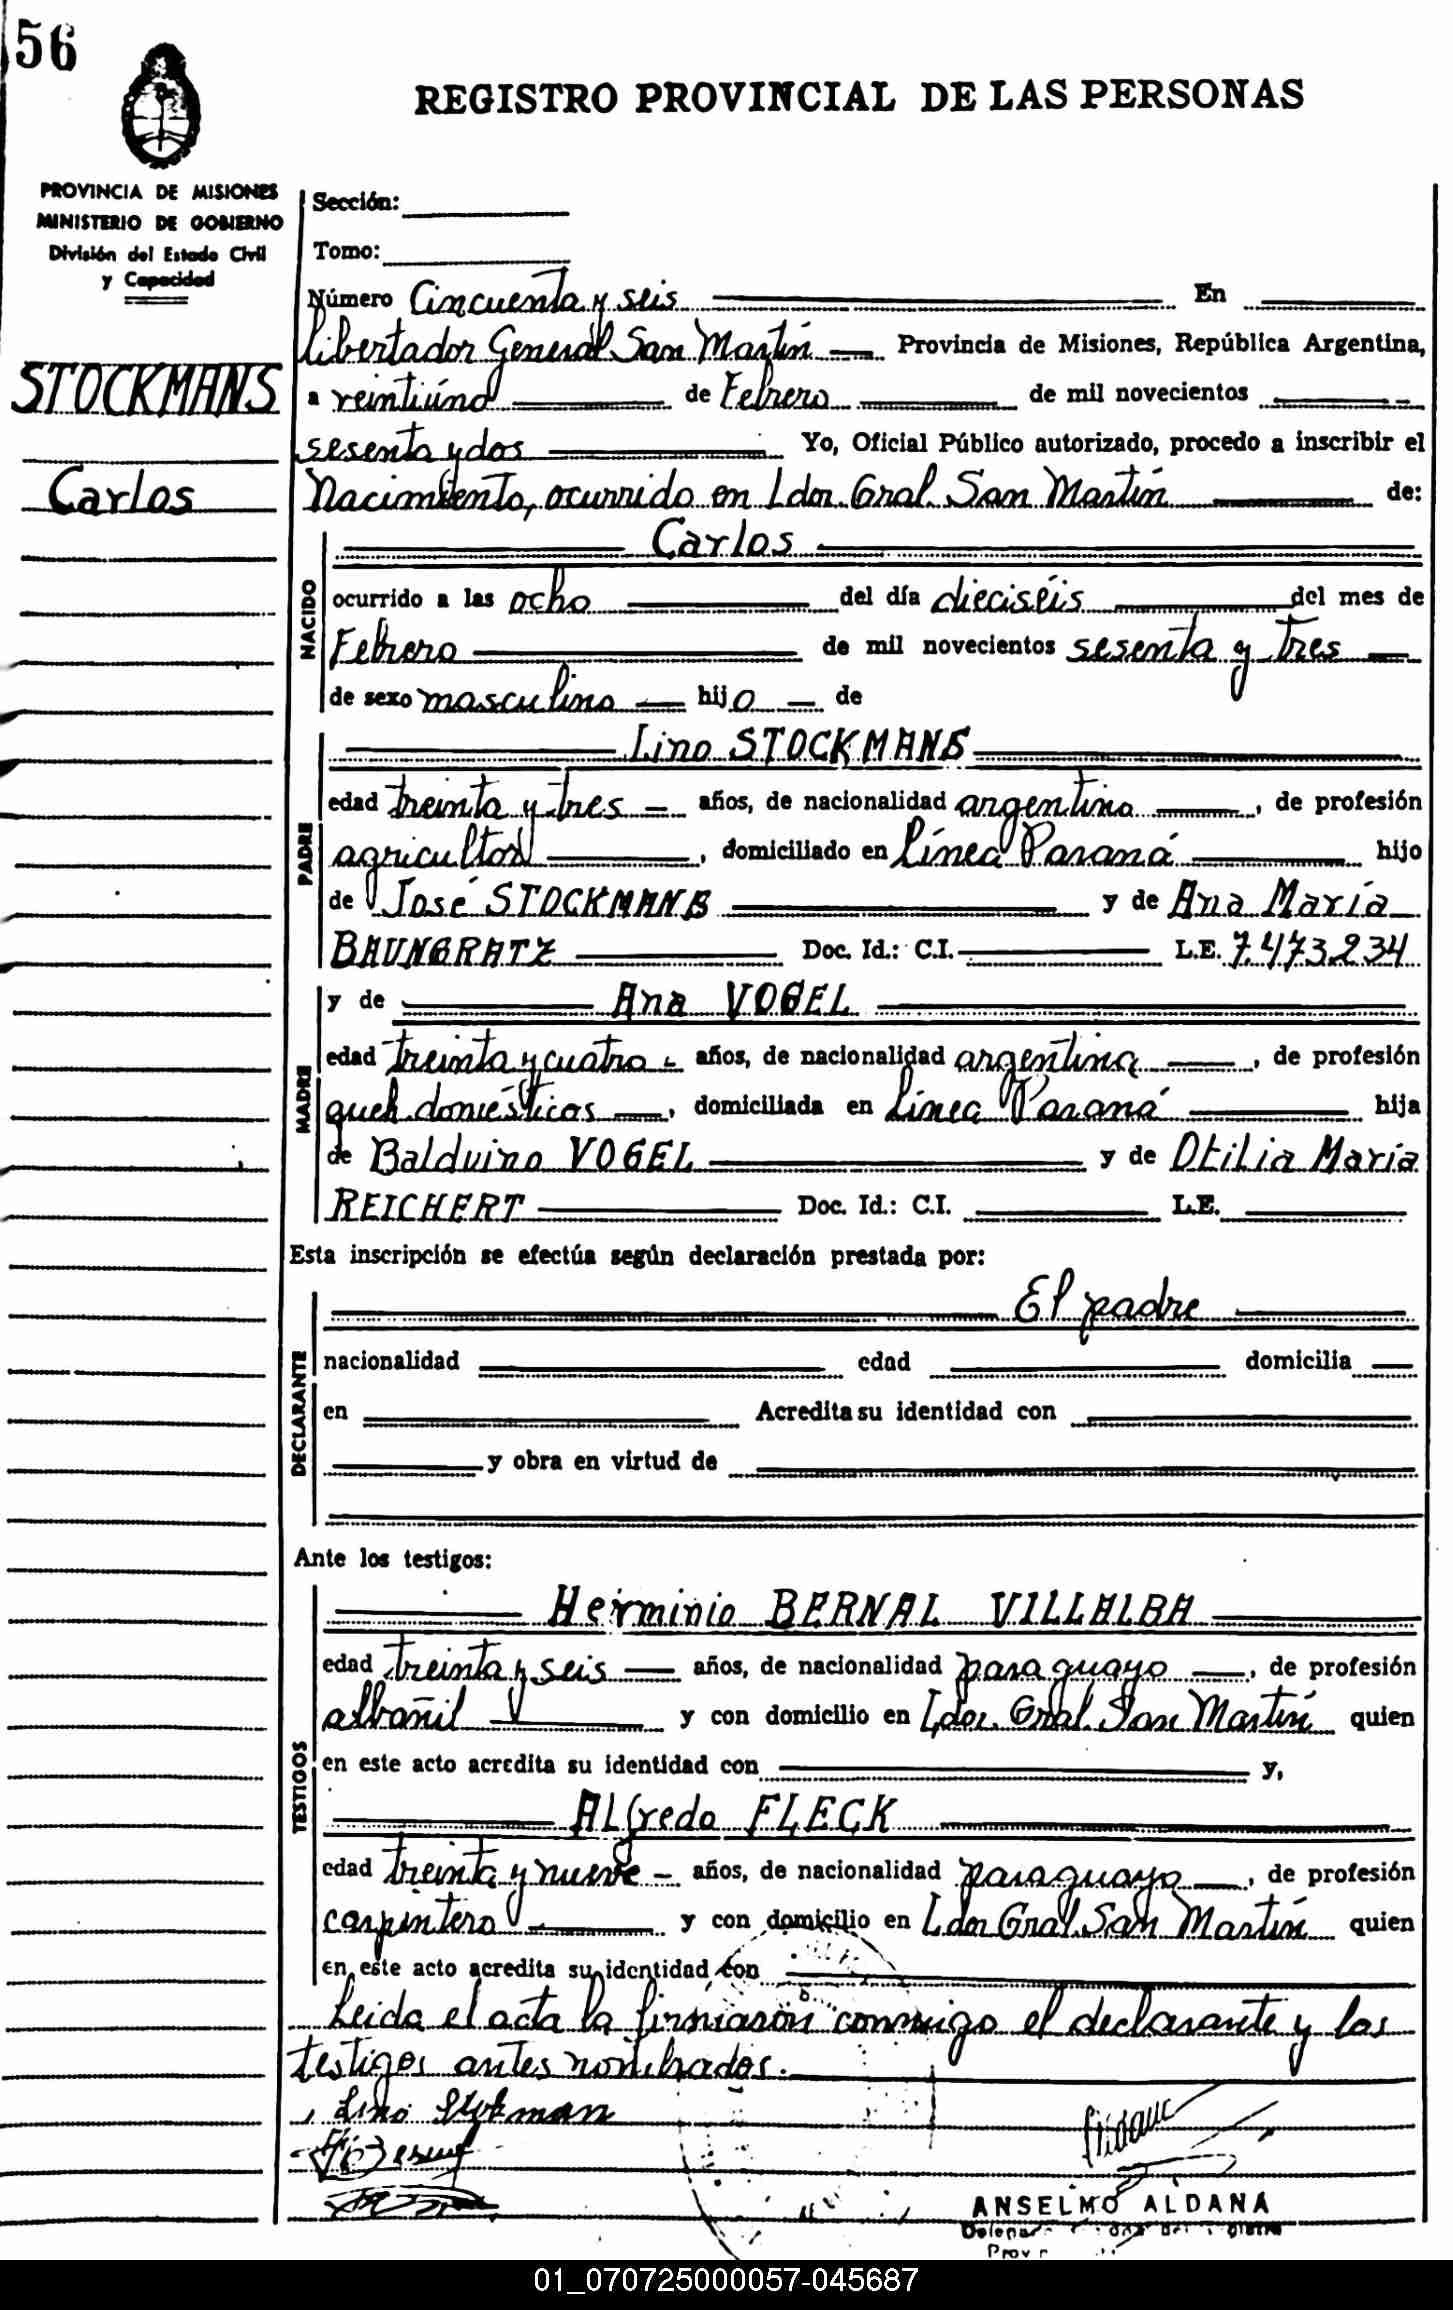 56
REGISTRO PROVINCIAL DE LAS PERSONAS
PROVINCIA DE MISIONES
MINISTERIO DE GOBIERNO
División del Estado Civil
y Capacidad
STOCKMANS
Carlos
Sección:
Tomo:
Número Cincuenta y seis En
Libertador General San Martín Provincia de Misiones, República Argentina,
a veintiúno de Febrero de mil novecientos
sesenta y dos Yo, Oficial Público autorizado, procedo a inscribir el
Nacimiento, ocurrido en Ldor Gral. San Martín de:
NACIDO
Carlos
ocurrido a las ocho del día dieciséis del mes de
Febrero de mil novecientos sesenta y tres
de sexo masculino hijo de
PADRE
Lino STOCKMANS
edad treinta y tres años, de nacionalidad argentino, de profesión
agricultor, domiciliado en Línea Paraná hijo
de José STOCKMANS y de Ana María
BAUNGRATZ Doc. Id.: C.I. L.E. 7.473.234
MADRE
y de Ana VOGEL
edad treinta y cuatro años, de nacionalidad argentina, de profesión
queh. domésticos, domiciliada en Línea Paraná hija
de Balduino VOGEL y de Otilia María
REICHERT Doc. Id.: C.I. L.E.
Esta inscripción se efectúa según declaración prestada por:
DECLARANTE
El padre
nacionalidad edad domicilia
en Acredita su identidad con
y obra en virtud de
Ante los testigos:
TESTIGOS
Herminio BERNAL VILLALBA
edad treinta y seis años, de nacionalidad paraguayo, de profesión
albañil y con domicilio en Ldor. Gral. San Martín quien
en este acto acredita su identidad con y,
Alfredo FLECK
edad treinta y nueve años, de nacionalidad paraguayo, de profesión
carpintero y con domicilio en Ldor Gral. San Martín quien
en este acto acredita su identidad con
Leida el acta la firmaron conmigo el declarante y los
testigos antes nombrados.
Lino Stokman
ANSELMO ALDANA
01_070725000057-045687